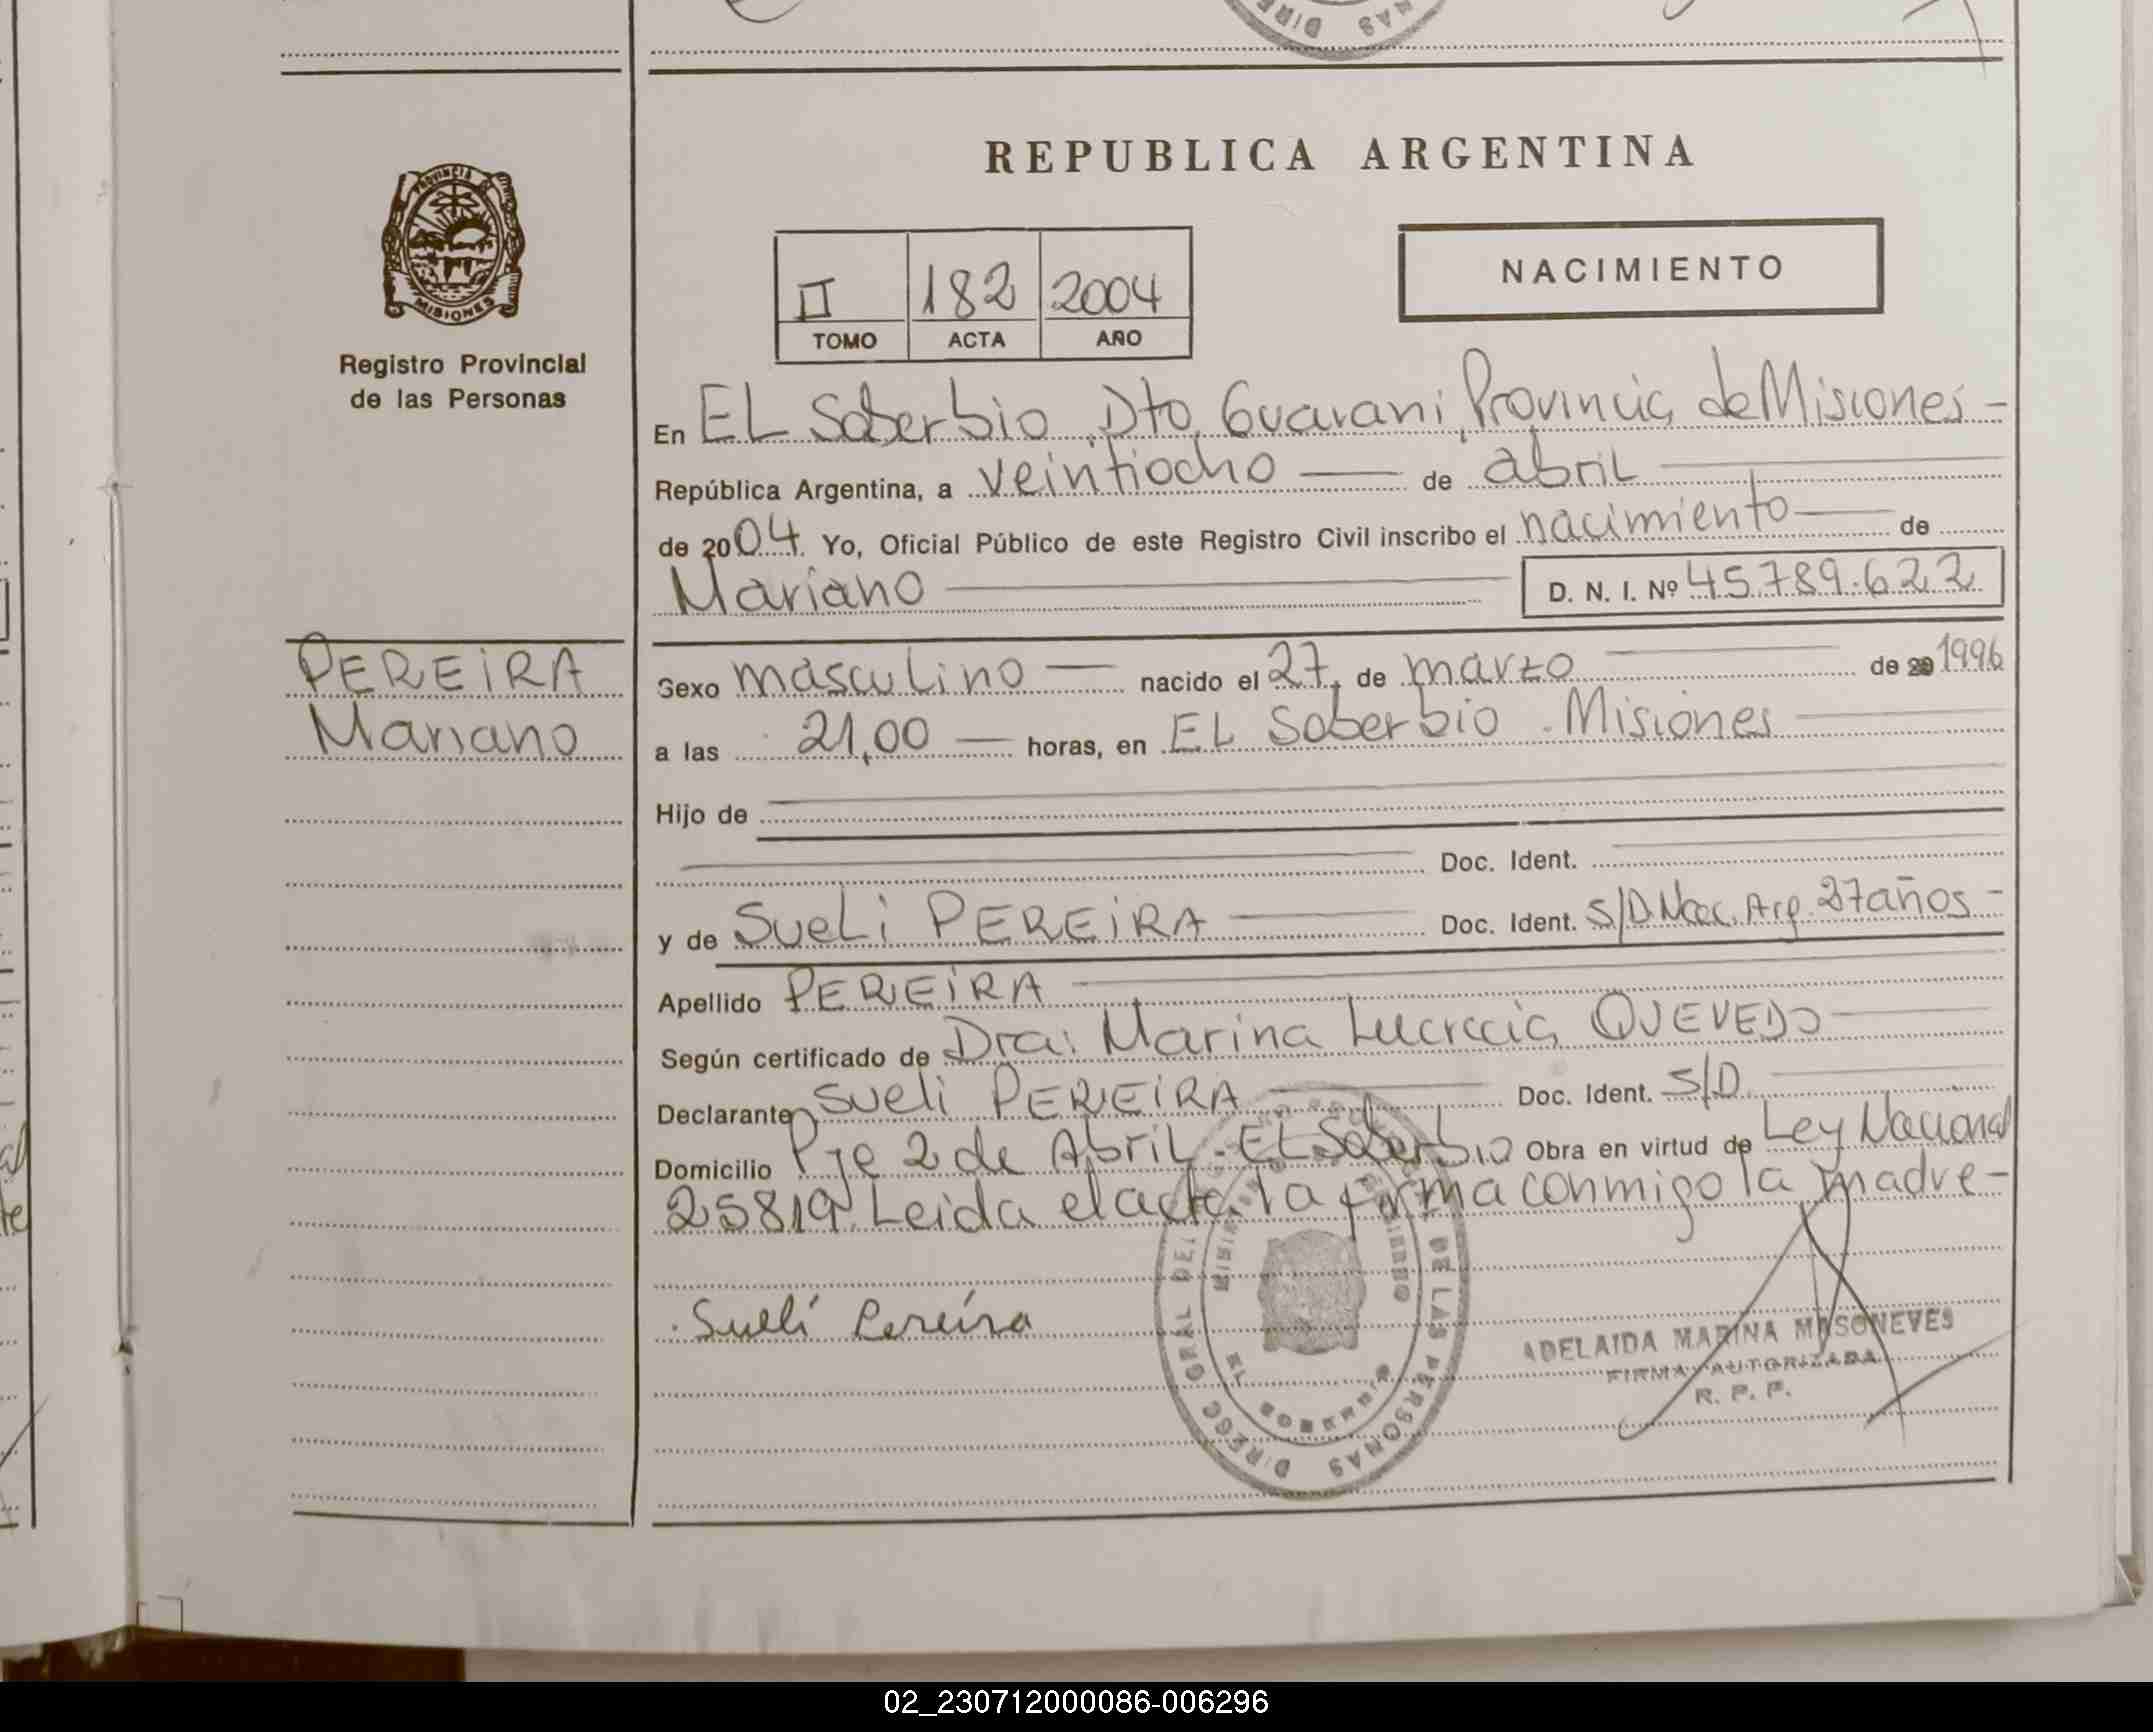 REPUBLICA ARGENTINA
PROVINCIA DE
MISIONES
Registro Provincial
de las Personas
II 182 2004
TOMO ACTA AÑO
NACIMIENTO
En EL Soberbio, Dto, Guarani, Provincia de Misiones -
República Argentina, a veintiocho de abril
de 2004. Yo, Oficial Público de este Registro Civil inscribo el nacimiento de
Mariano D. N. I. Nº 45.789.622
PEREIRA
Mariano
Sexo masculino nacido el 27 de marzo de 20 1996
a las 21,00 horas, en EL Soberbio - Misiones
Hijo de
Doc. Ident.
y de Sueli PEREIRA Doc. Ident. S/D. Nac. Arg. 27 años -
Apellido PEREIRA
Según certificado de Dra: Marina Lucrecia QUEVEDO
Declarante Sueli PEREIRA Doc. Ident. S/D
Domicilio Pje 2 de Abril - EL Soberbio Obra en virtud de Ley Nacional
25819. Leida el acta la firma conmigo la madre -
Sueli Pereira
DIRECC GRAL DEL DE LAS PERSONAS
MISIONES
EL SOBERBIO
ADELAIDA MARINA MASONEVES
FIRMA AUTORIZADA
R. P. P.
02_230712000086-006296